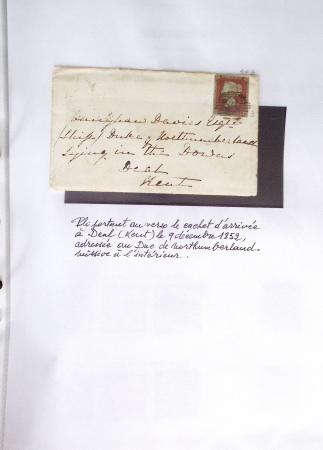 Davies Esqre
Ship Duke of Northumberland
lying in the Downs
Deal
Kent
Pli portant au verso le cachet d'arrivée
à Deal (Kent) le 9 décembre 1852,
adressée au Duc de Northumberland.
missive à l'intérieur.